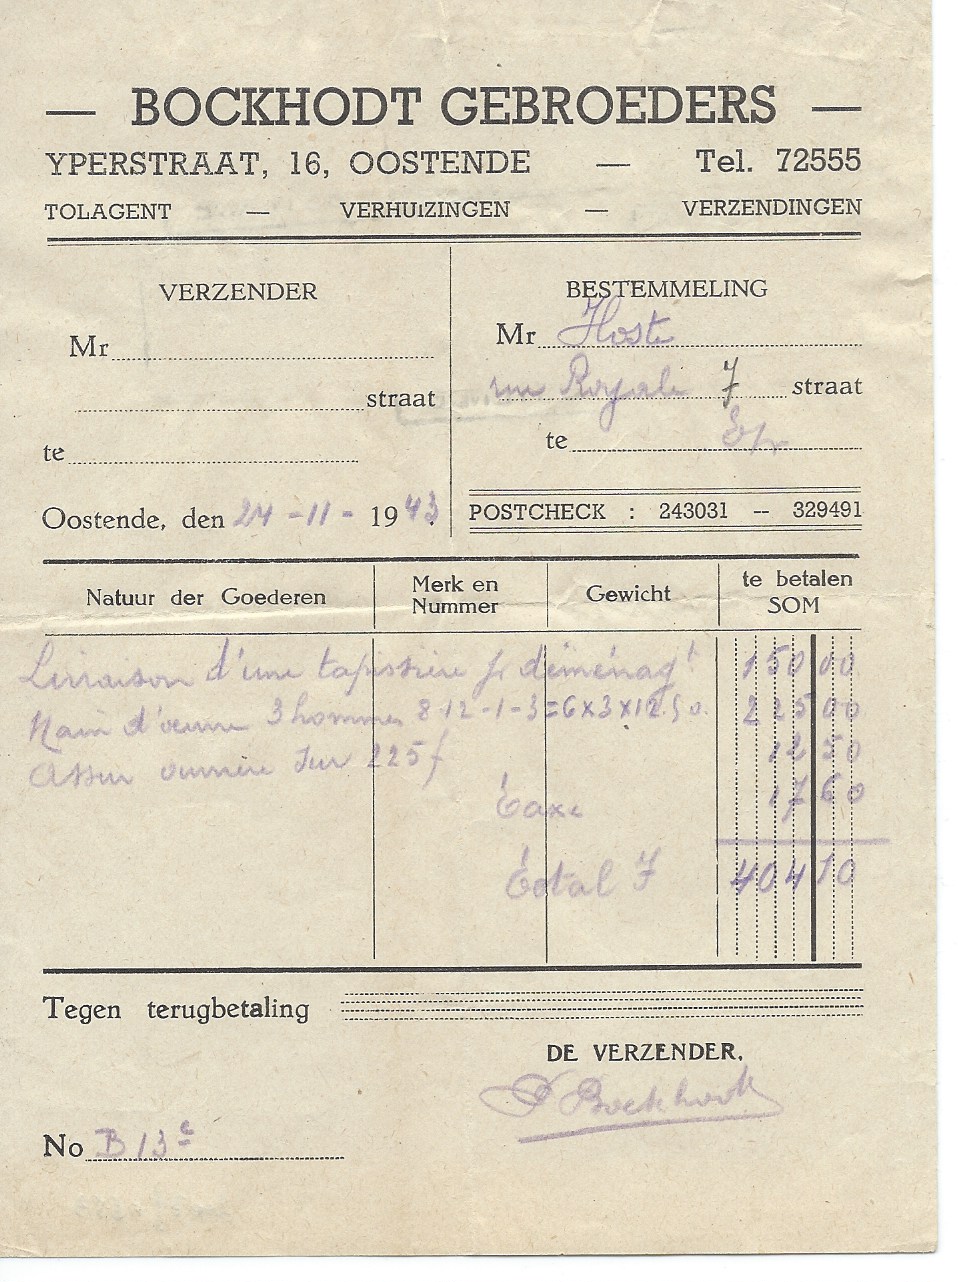 — BOCKHODT GEBROEDERS —
YPERSTRAAT, 16, OOSTENDE — Tel. 72555
TOLAGENT — VERHUIZINGEN — VERZENDINGEN
VERZENDER
Mr
straat
te
Oostende, den 24-11-1943
BESTEMMELING
Mr Hoste
rue Royale 7 straat
te
POSTCHECK : 243031 -- 329491
Natuur der Goederen
Merk en Nummer
Gewicht
te betalen SOM
Livraison d'une tapissière pr déménagt 150 00
Main d'œuvre 3 hommes 8-12-1-3=6x3x12.50. 225 00
Assur ouvrière sur 225 f 12 50
Taxe 17 60
Total F 404 10
Tegen terugbetaling
DE VERZENDER,
Bockhodt
No B 13